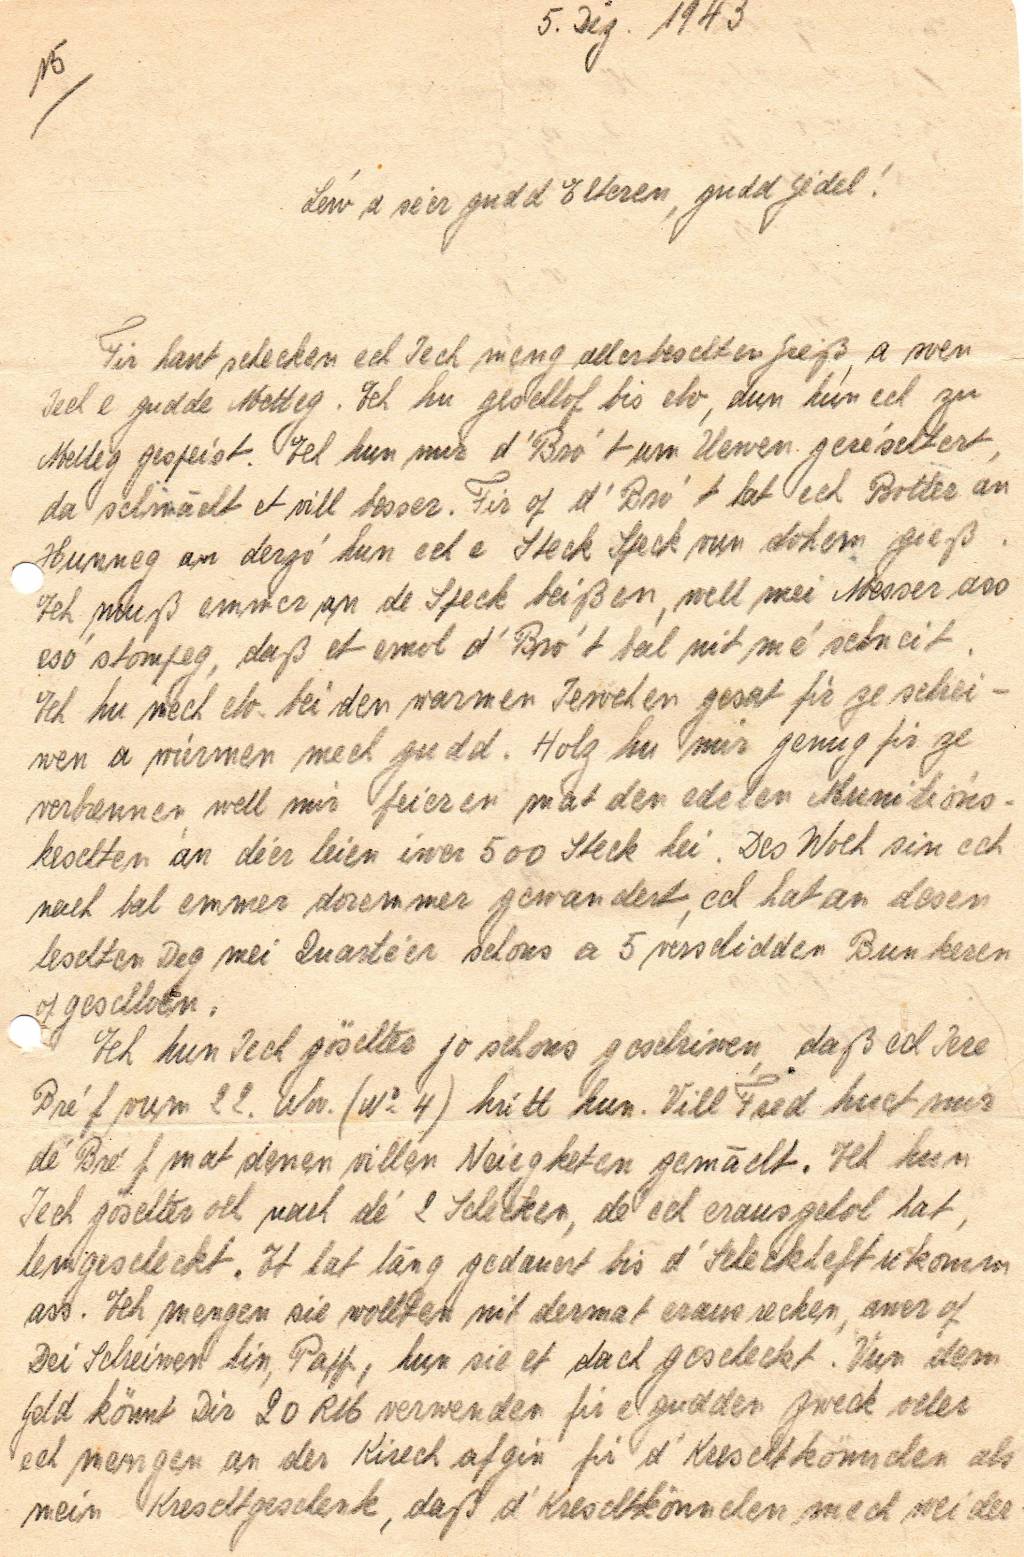 5. Dez. 1943
15
Léiw a séier gudd Elteren, gudd Jédel!
Fir haut schecken ech Iech meng allerbeschten Greiß, a wen
Iech e gudde Metteg. Ech hu geschlof bis elo, dun hun ech zu
Metteg gespeist. Ech hun mir d'Bro't um Uewen geréschtert,
da schmächt et vill besser. Fir of d'Bro't hat ech Botter an
Hunneg an derzo' hun ech e Steck Speck vun dohem gieß.
Ech muß emmer an de Speck beißen, well mei Messer ass
eso' stompeg, daß et emol d'Bro't bal nit mé schneit.
Ech hu mech elo bei den warmen Iewchen gesat fir ze schrei-
wen a wiermen mech gudd. Holz hu mir genug fir ze
verbrennen well mir feieren mat den edelen Munitións-
keschten an déer leien iwer 500 Steck hei. Des Woch sin ech
nach bal emmer doremmer gewandert, ech hat an desen
leschten Deg mei Quartéer schons a 5 verschidden Bunkeren
ofgeschloen.
Ech hun Iech göschter jo schons geschriwen, daß ech Iere
Bréf vum 22. Nov. (No 4) kritt hun. Vill Fred huet mir
dé Bréf mat denen villen Neiegketen gemächt. Ech hun
Iech göschter och nach dé 2 Schecken, dé ech erausgehol hat,
hemgescheckt. Et hat läng gedauert bis d'Scheckheft ukomm
ass. Ech mengen sie wollten nit dermat erausrecken, awer of
Dei Schreiwen hin, Papp, hun sie et dach gescheckt. Vun dem
Geld könnt Dir 20 RM verwenden fir e gudden Zweck oder
ech mengen an der Kirech afgin fir d'Kreschtkönnchen als
mein Kreschtgeschenk, daß d'Kreschtkönnchen mech weider